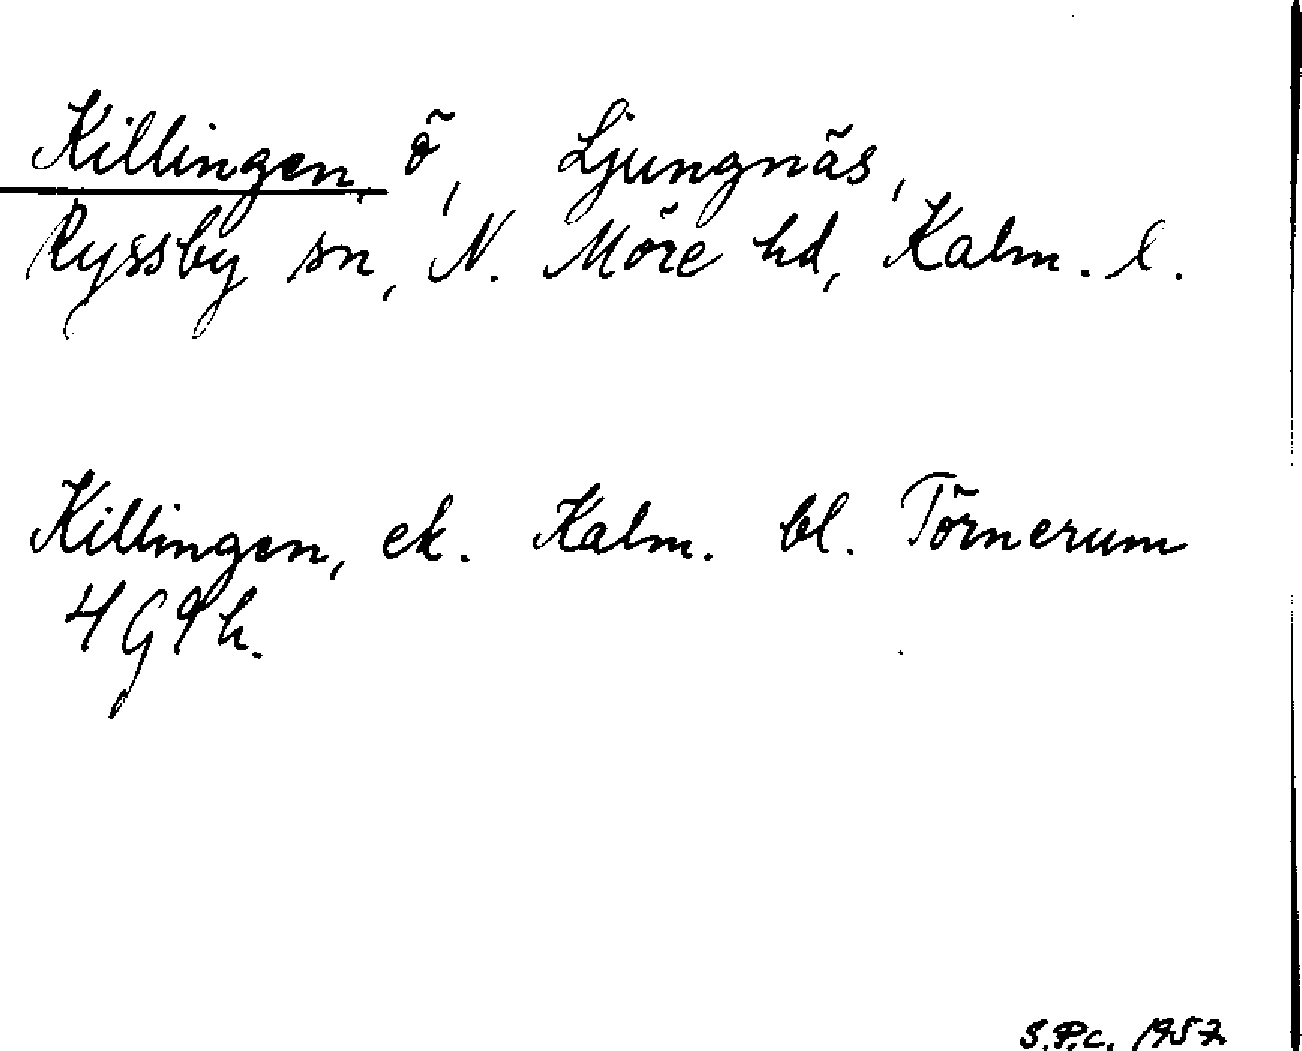 Killingen, ö, Ljungnäs,
Ryssby sn, N. Möre hd, Kalm. l.
Killingen, ek. Kalm. bl. Törnerum
4G9h.
S.P.c. 1957